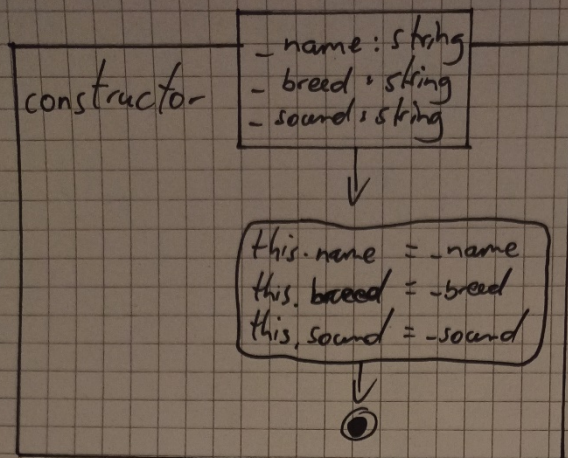 constructor
_name: string
_breed: string
_sound: string
this.name = _name
this.breed = _breed
this.sound = _sound